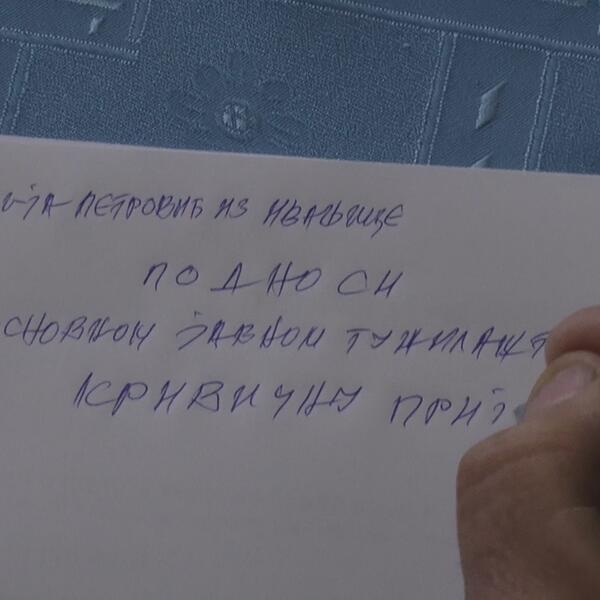 ПЕТРОВИЋ ИЗ ИВАЊИЦЕ
ПОДНОСИ
СНОВНОМ ЈАВНОМ ТУЖИЛАШТ
КРИВИЧНУ ПРИЈ